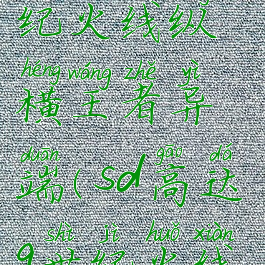 纪火线纵
héng wáng zhě yì
横王者异
duān gāo dá
端(sd高达
shì jì huǒ xiàn
g世纪火线